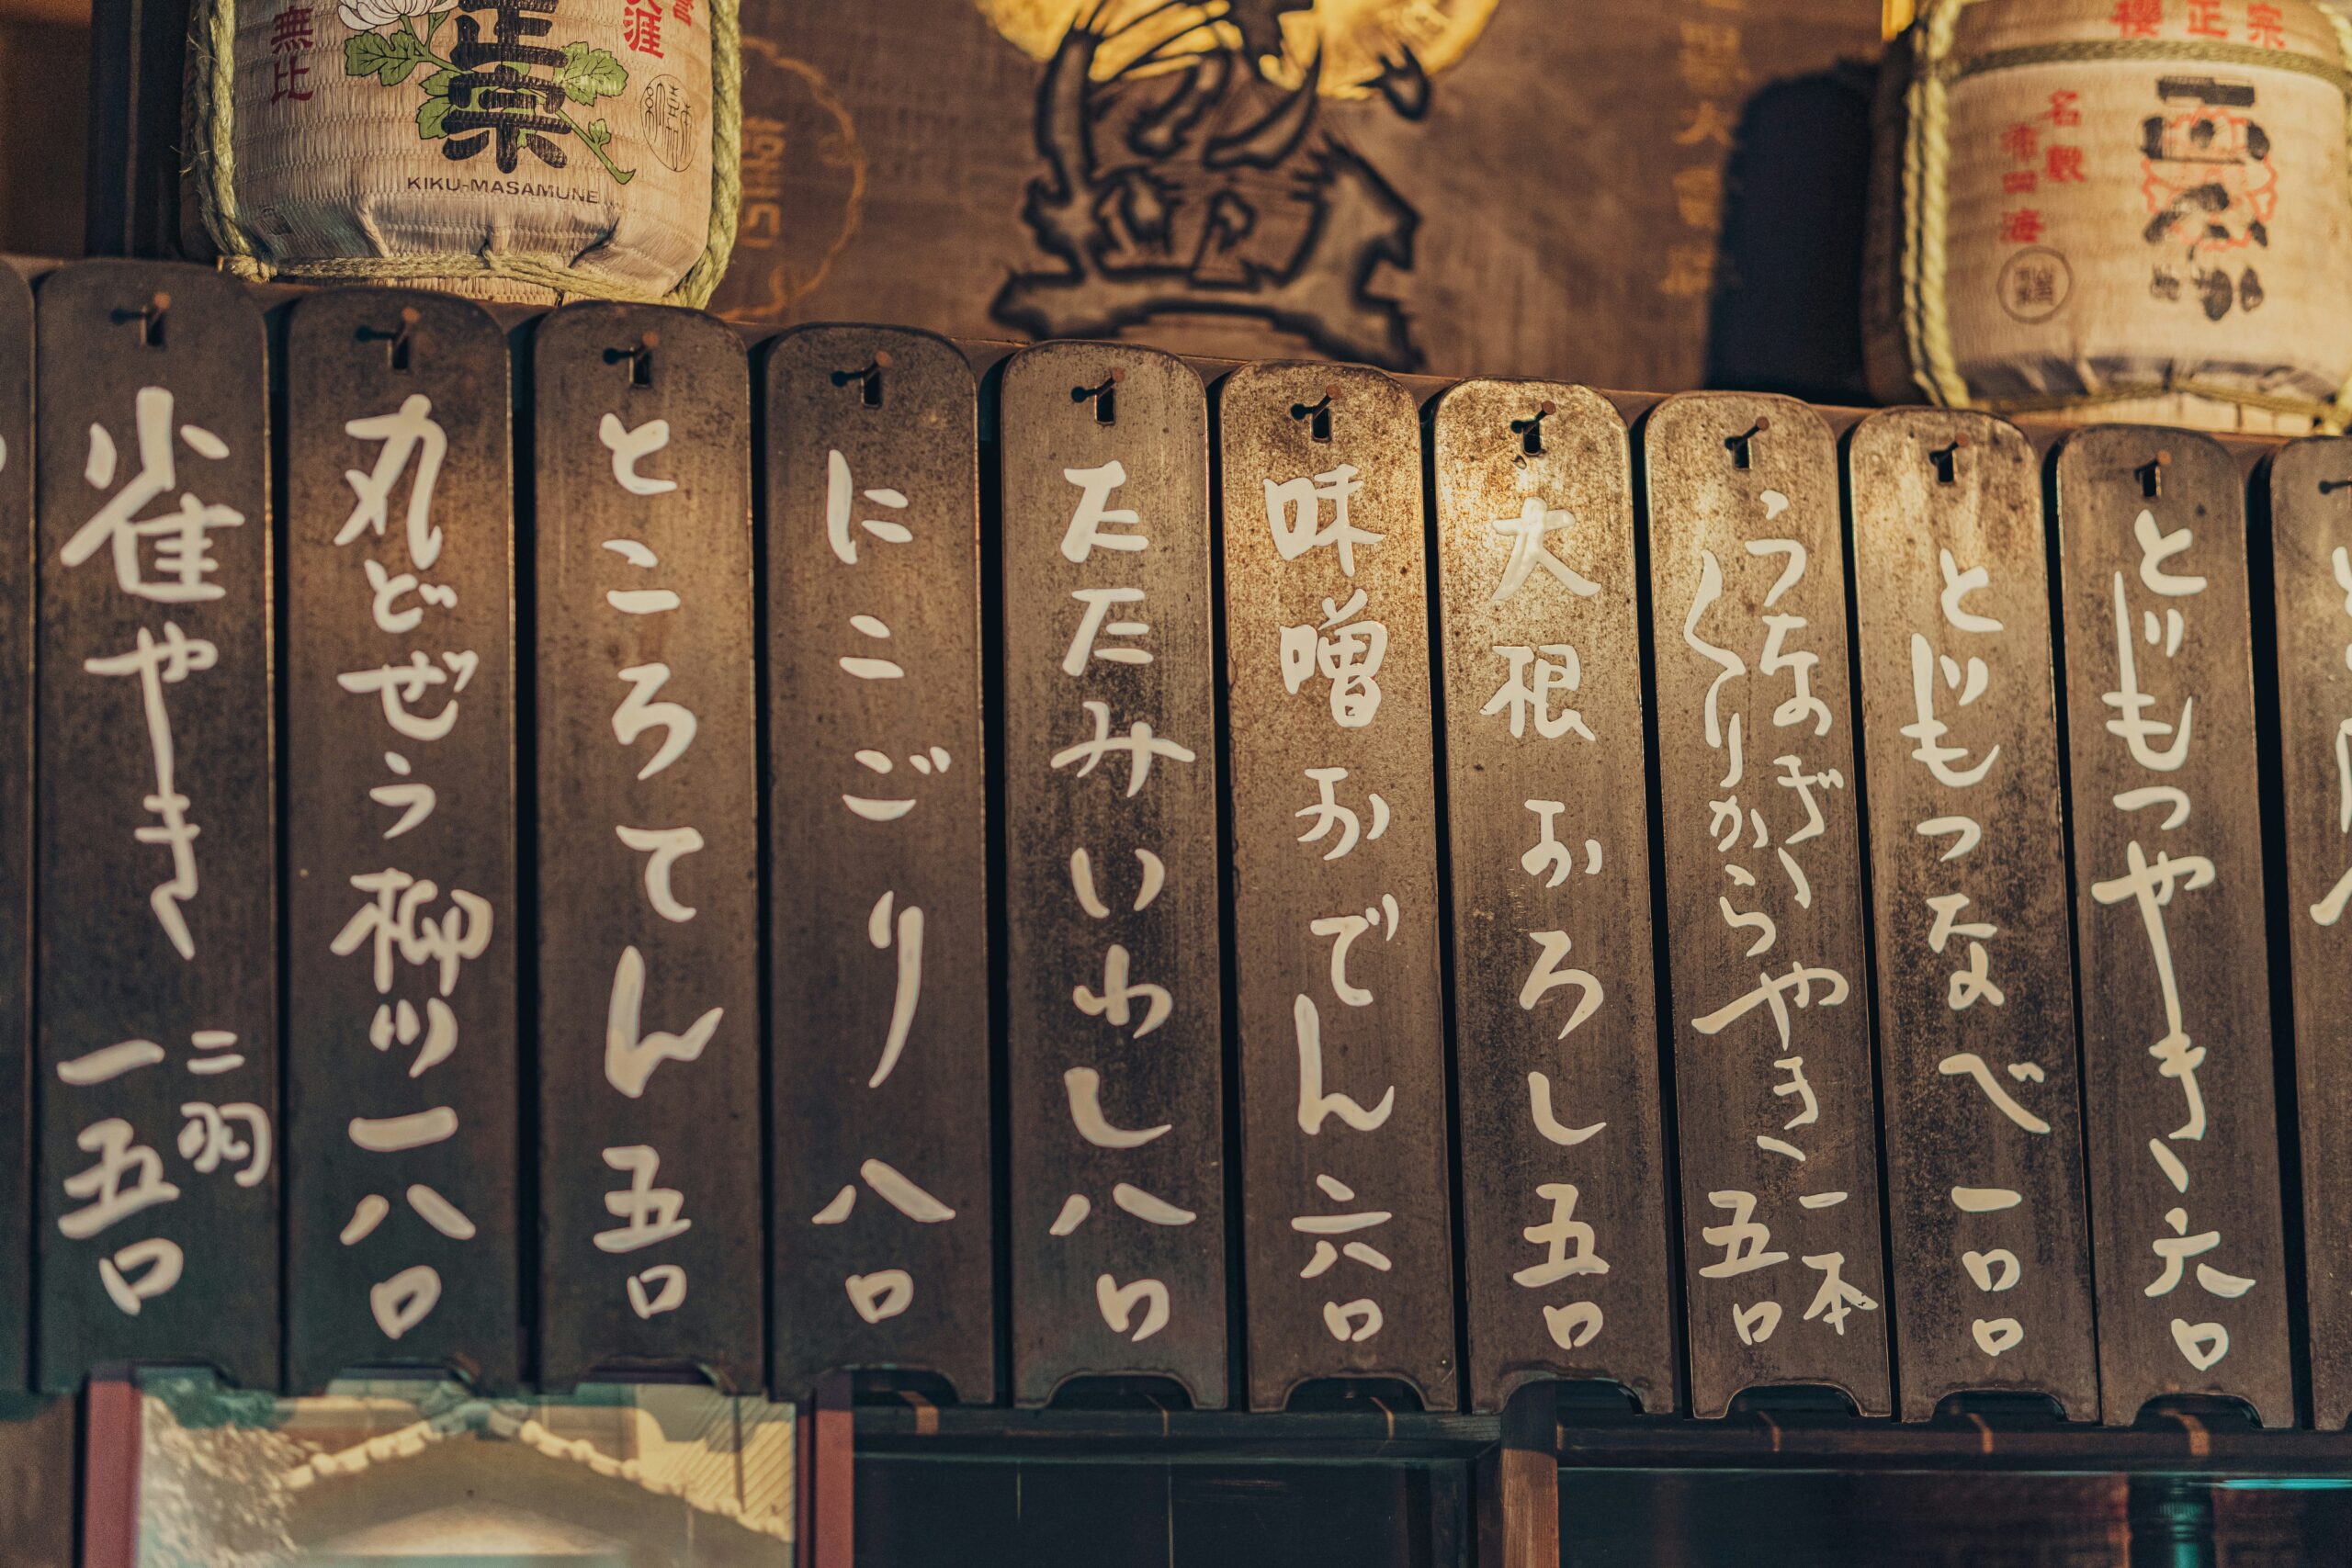 櫻正宗
無比
正宗
KIKU-MASAMUNE
とじもつやき、六〇
とじもつなべ一〇〇
うなぎ、くりからやき一本五〇
大根おろし五〇
味噌おでん六〇
たたみいわし八〇
にこごり八〇
ところてん五〇
丸どぜう柳川一八〇
雀やき二羽一五〇